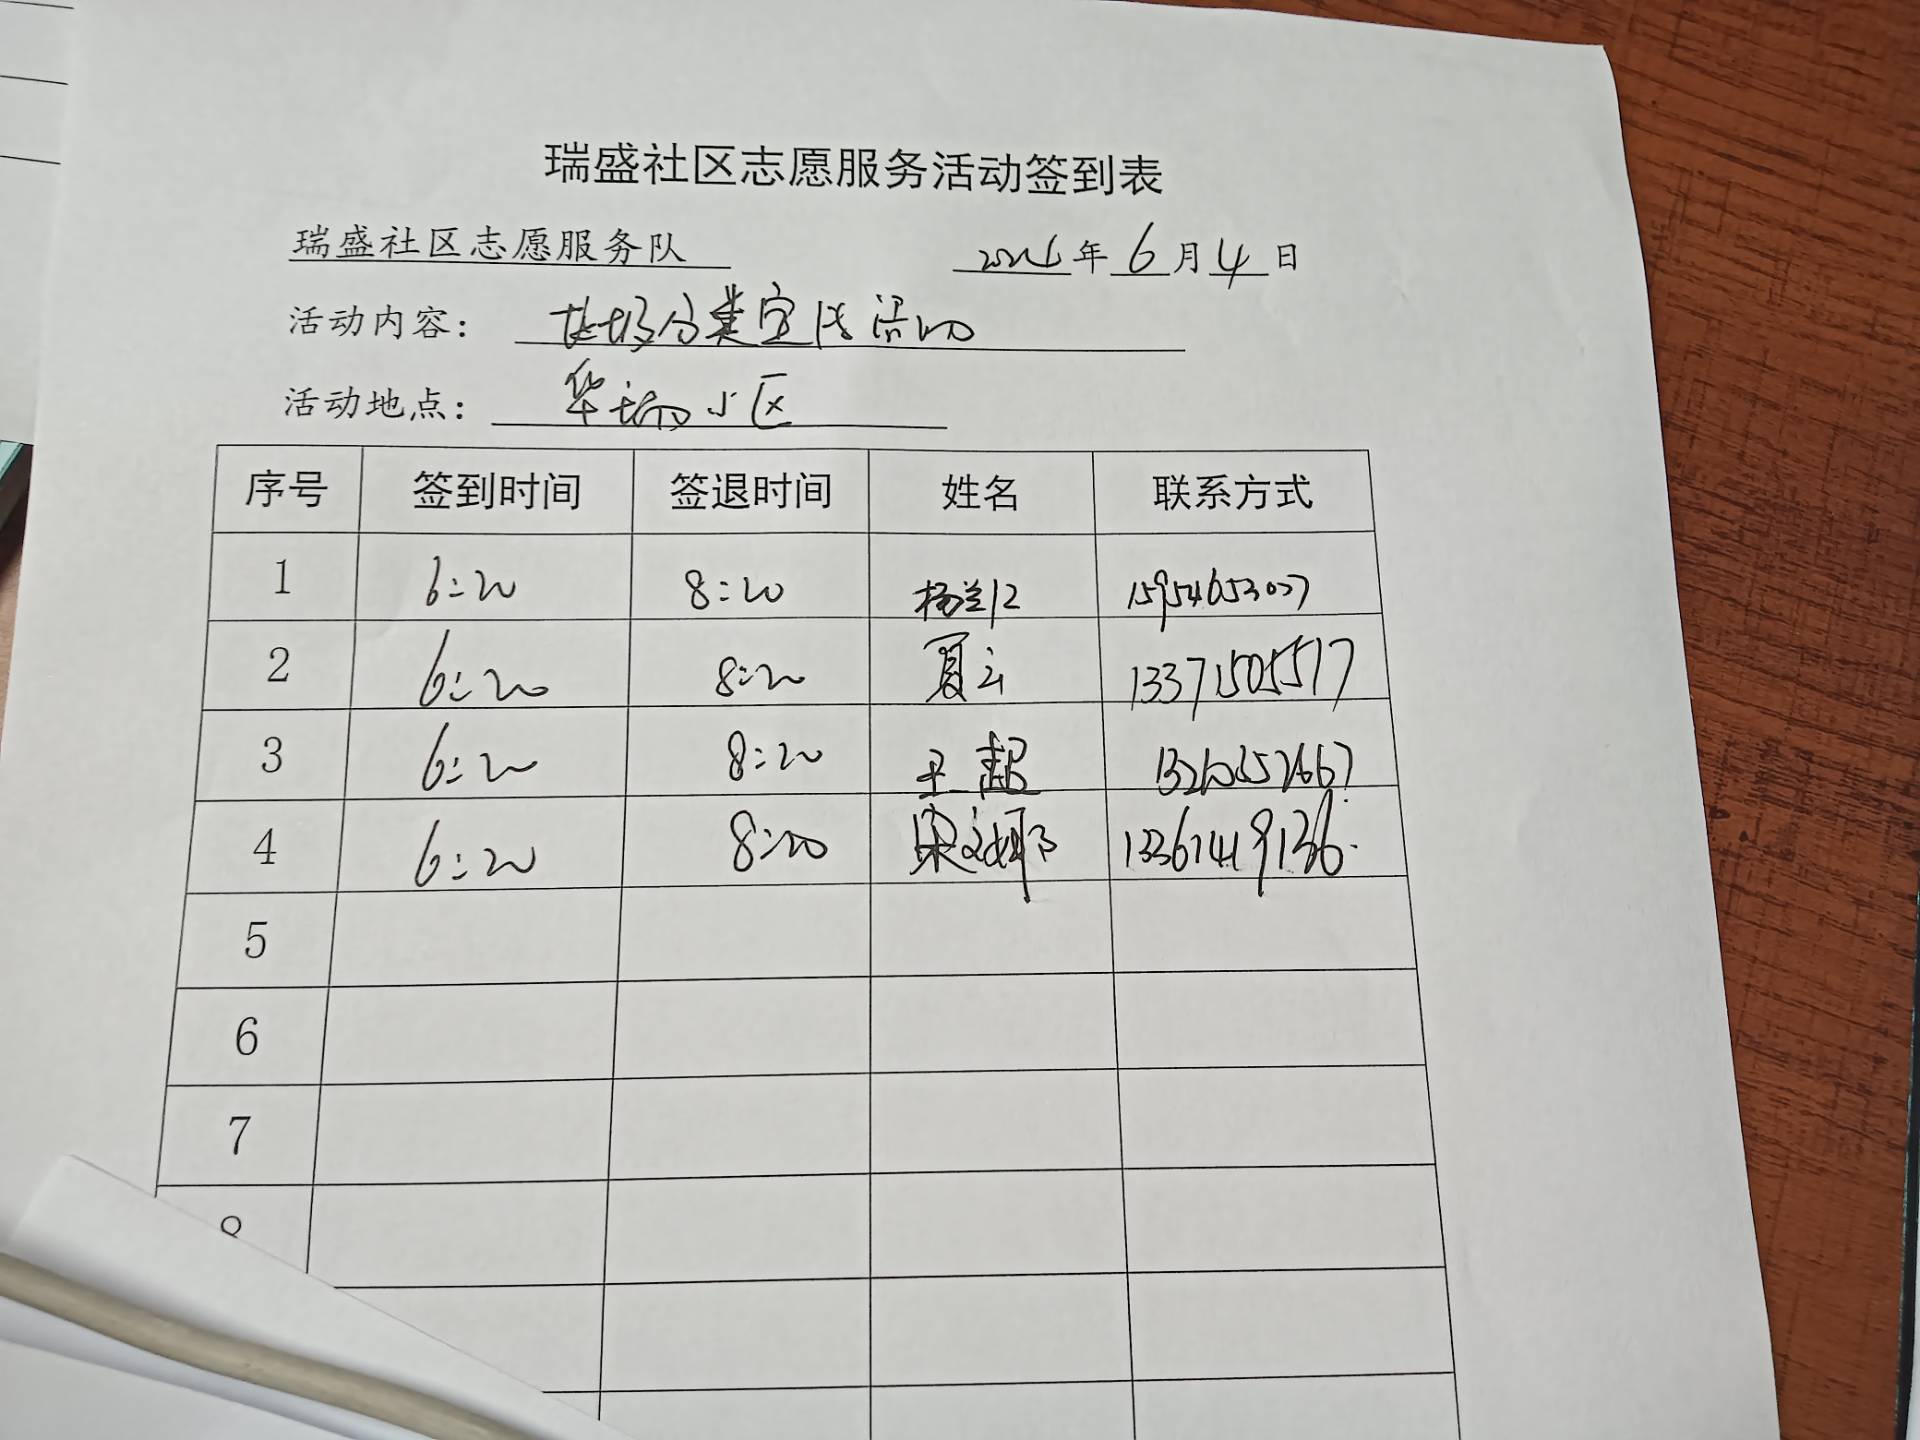 瑞盛社区志愿服务活动签到表
瑞盛社区志愿服务队 2026年6月4日
活动内容： 垃圾分类宣传活动
活动地点： 华瑞小区
序号 签到时间 签退时间 姓名 联系方式
1 6:20 8:20 15954653027
2 6:20 8:20 夏云 13371505517
3 6:20 8:20 王超
4 6:20 8:20 宋文娜 13361419136.
5
6
7
8